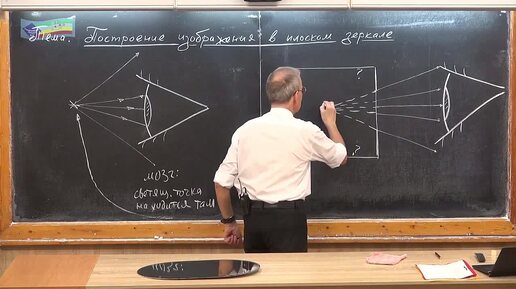 Тема. Построение изображения в плоском зеркале
?
мозг:
светящ. точка
находится там
?